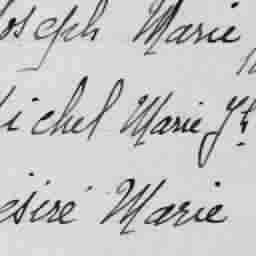 Joseph Marie
Michel Marie Jh
Désiré Marie